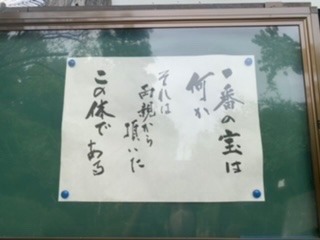 一番の宝は
何か
それは
両親から
頂いた
この体で
ある